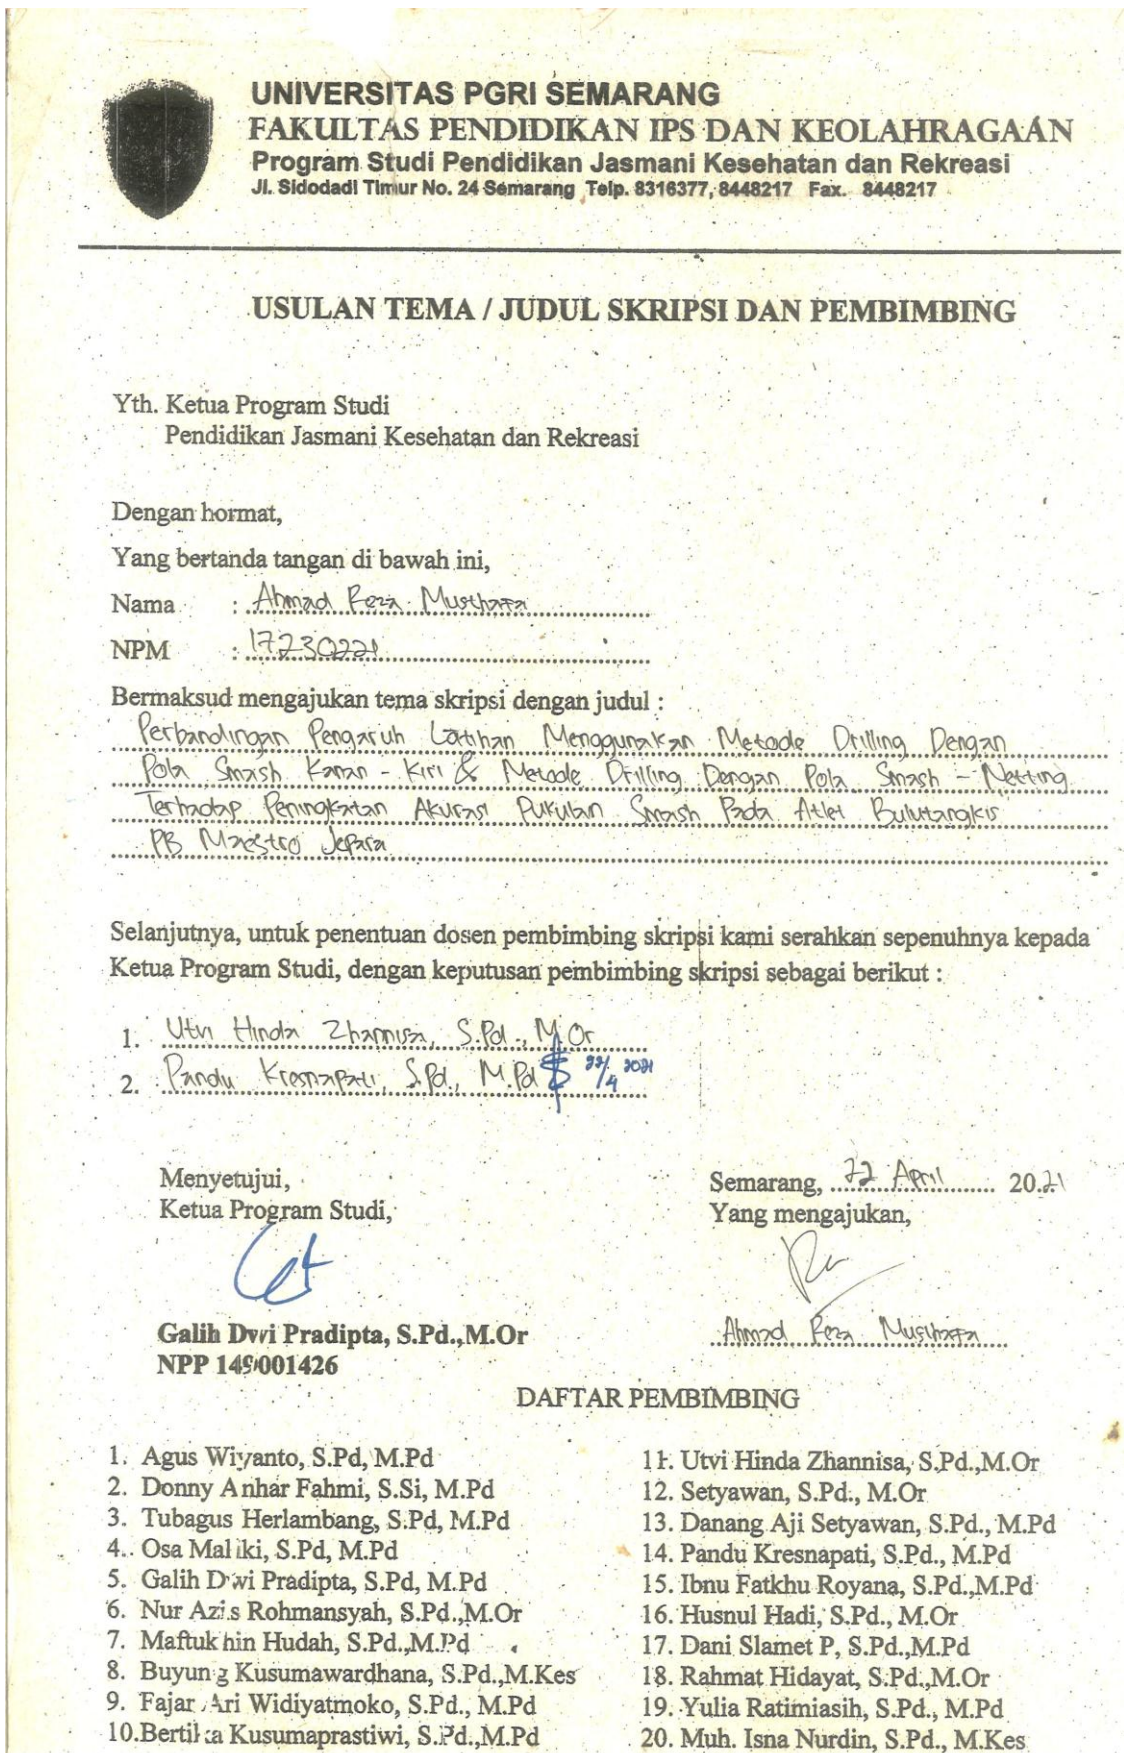 UNIVERSITAS PGRI SEMARANG
FAKULTAS PENDIDIKAN IPS DAN KEOLAHRAGAAN
Program Studi Pendidikan Jasmani Kesehatan dan Rekreasi
Jl. Sidodadi Timur No. 24 Semarang Telp. 8316377, 8448217 Fax. 8448217
USULAN TEMA / JUDUL SKRIPSI DAN PEMBIMBING
Yth. Ketua Program Studi
Pendidikan Jasmani Kesehatan dan Rekreasi
Dengan hormat,
Yang bertanda tangan di bawah ini,
Nama : Ahmad Reza Musthafa
NPM : 17230221
Bermaksud mengajukan tema skripsi dengan judul :
Perbandingan Pengaruh Latihan Menggunakan Metode Drilling Dengan
Pola Smash Kanan - Kiri & Metode Drilling Dengan Pola Smash - Netting
Terhadap Peningkatan Akurasi Pukulan Smash Pada Atlet Bulutangkis
PB Maestro Jepara
Selanjutnya, untuk penentuan dosen pembimbing skripsi kami serahkan sepenuhnya kepada
Ketua Program Studi, dengan keputusan pembimbing skripsi sebagai berikut :
1. Utvi Hinda Zhannisa, S.Pd., M.Or
2. Pandu Kresnapati, S.Pd., M.Pd 22/4 2021
Menyetujui,
Ketua Program Studi,
Galih Dwi Pradipta, S.Pd.,M.Or
NPP 149001426
Semarang, 22 April 2021
Yang mengajukan,
Ahmad Reza Musthafa
DAFTAR PEMBIMBING
1. Agus Wiyanto, S.Pd, M.Pd
2. Donny Anhar Fahmi, S.Si, M.Pd
3. Tubagus Herlambang, S.Pd, M.Pd
4. Osa Maliki, S.Pd, M.Pd
5. Galih Dwi Pradipta, S.Pd, M.Pd
6. Nur Azis Rohmansyah, S.Pd.,M.Or
7. Maftukhin Hudah, S.Pd.,M.Pd
8. Buyung Kusumawardhana, S.Pd.,M.Kes
9. Fajar Ari Widiyatmoko, S.Pd., M.Pd
10.Bertika Kusumaprastiwi, S.Pd.,M.Pd
11. Utvi Hinda Zhannisa, S.Pd.,M.Or
12. Setyawan, S.Pd., M.Or
13. Danang Aji Setyawan, S.Pd., M.Pd
14. Pandu Kresnapati, S.Pd., M.Pd
15. Ibnu Fatkhu Royana, S.Pd.,M.Pd
16. Husnul Hadi, S.Pd., M.Or
17. Dani Slamet P, S.Pd.,M.Pd
18. Rahmat Hidayat, S.Pd.,M.Or
19. Yulia Ratimiasih, S.Pd., M.Pd
20. Muh. Isna Nurdin, S.Pd., M.Kes